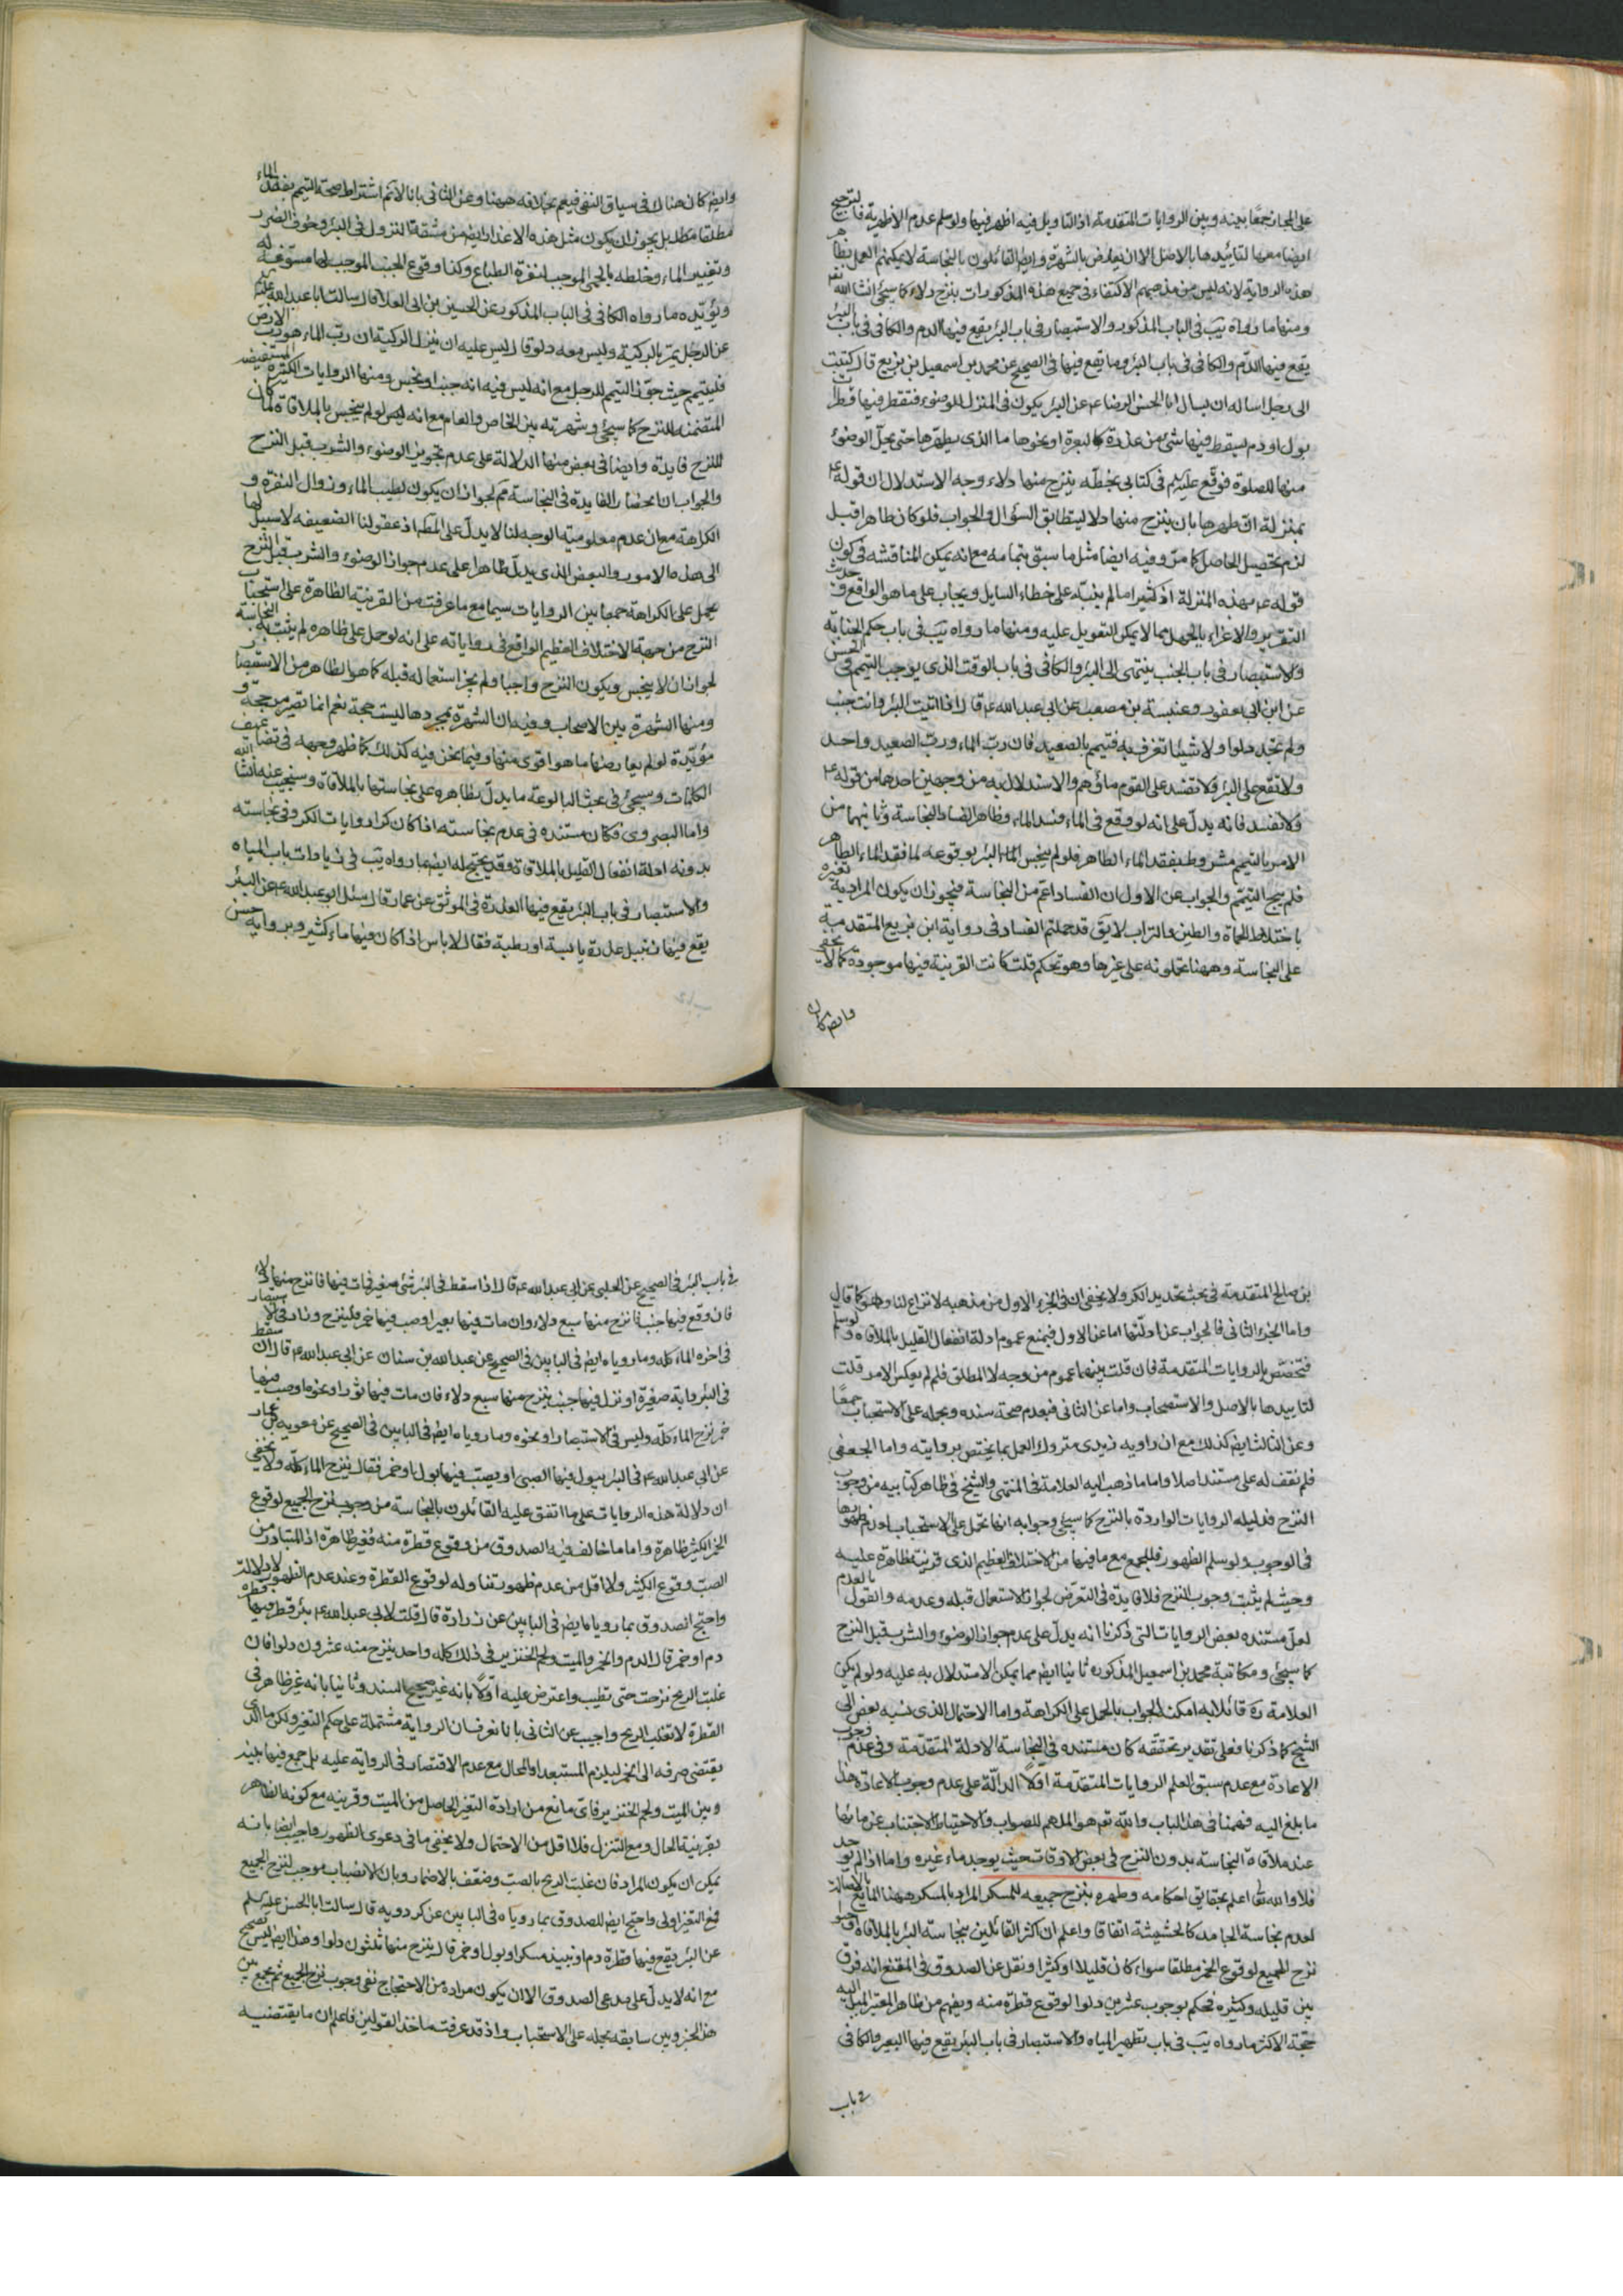 على المجاز جمعا بينه وبين الروايات المتقدمة اذ التاويل فيه اظهر فيها ولو سلم عدم الاظهرية فالترجيح
ايضا معها لتاييدها بالاصل الا ان يعارض بالشهرة وايضا القائلون بالنجاسة لا يمكنهم العمل بظاهر
هذه الرواية لانه ليس من مذهبهم الاكتفاء في جميع هذه المذكورات بنزح دلاء كما سيجئ انشا الله تعم
ومنها ما رواه يب في الباب المذكور والاستبصار في باب البئر يقع فيها الدم والكافي في باب البئر
يقع فيها الدم والكافي في باب البئر وما يقع فيها في الصحيح عن محمد بن اسمعيل بن بزيع قال كتبت
الى رجل اساله ان يسال ابا الحسن الرضا عم عن البئر يكون في المنزل للوضوء فتقطر فيها قطرات
بول او دم او يسقط فيها شئ من عذرة كالبعرة او نحوها ما الذي يطهرها حتى يحل الوضوء
منها للصلوة فوقع عليه السلم في كتابي بخطه ينزح منها دلاء وجه الاستدلال ان قوله ع
بمنزلة ان طهرها بان ينزح منها دلا ليتطابق السؤال والجواب فلو كان طاهرا قبل
لزم تحصيل الحاصل كما مر وفيه ايضا مثل ما سبق بتمامه مع انه يمكن المناقشه في كون
قوله عم بهذه المنزلة اذ كثيرا ما لم ينبه على خطاء السايل ويجاب على ما هو الواقع وحديث
التقرير والاغراء بالجهل مما لا يمكن التعويل عليه ومنها ما رواه يب في باب حكم الجنابة
والاستبصار في باب الجنب ينتهى الى البئر والكافي في باب الوقت الذي يوجب التيمم في الحسن
عن ابن ابي يعفور وعنبسة بن مصعب عن ابي عبد الله عم قال اذا اتيت البئر وانت جنب
ولم تجد دلوا ولا شيئا تغرف به فتيمم بالصعيد فان رب الماء ورب الصعيد واحد
ولا تقع على البئر ولا تفسد على القوم ماؤهم والاستدلال به من وجهين احدهما من قوله ع
ولا تفسد فانه يدل على انه لو وقع في الماء فسد الماء وظاهر الفساد النجاسة وثانيهما من
الامر بالتيمم مشروط بفقد الماء الطاهر فلو لم ينجس الماء البئر بوقوعه لما فقد الماء الطاهر
فلم يبح التيمم والجواب عن الاول ان الفساد اعم من النجاسة فيجوز ان يكون المراد به تغيره
باختلاط الحماة والطين والتراب لا يق قد حملتم الفساد في رواية ابن بزيع المتقدمة
على النجاسة وههنا تحملونه على غيرها وهو تحكم قلت كانت القرينة فيها موجودة كما لا يخفى
وايضا كان
وايضا كان هناك في سياق النفي فيعم بخلافه ههنا وعن الثاني بانا لا نم اشتراط صحة التيمم بفقد الماء
مطلقا بل يجوز ان يكون مثل هذه الاعذار ايضا من مشقة النزول في البئر وخوف الضرر
وتغيير الماء وخلطه بالحمئ الموجب لنفرة الطباع وكذا وقوع الجنب الموجب لها مسوغة له
ويؤيده ما رواه الكافي في الباب المذكور عن الحسين بن ابي العلا قال سالت ابا عبد الله عليه السلم
عن الرجل يمر بالركية وليس معه دلو قال ليس عليه ان ينزل الركية ان رب الماء هو رب الارض
فليتيمم حيث جوز التيمم للرجل مع انه ليس فيه انه جنب او نجس ومنها الروايات الكثيرة المستفيضه
المتضمنه للنزح كما سيجئ وشهرته بين الخاص والعام مع انه لو لم ينجس بالملاقاة لما كان
للنزح فايدة وايضا في بعض منها الدلالة على عدم تجويز الوضوء والشرب قبل النزح
والجواب ان انحصار الفايدة في النجاسة مم لجواز ان يكون لطيب الماء وزوال النفرة و
الكراهة مع ان عدم معلومية الوجه لنا لا يدل على المط اذ عقولنا الضعيفه لا سبيل لها
الى هذه الامور والبعض الذي يدل ظاهرا على عدم جواز الوضوء والشرب قبل النزح
يحمل على الكراهة جمعا بين الروايات سيما مع ما عرفت من القرينة الظاهرة على استحباب
النزح من جهة الاختلاف العظيم الواقع في رواياته على انه لو حمل على ظاهره لم يثبت به النجاسة
لجواز ان لا ينجس ويكون النزح واجبا ولم يجز استعماله قبله كما هو الظاهر من الاستبصار
ومنها الشهرة بين الاصحاب وفيه ان الشهرة بمجردها ليست حجة نعم انما تصير مرجحة و
مؤيدة لو لم يعارضها ما هو اقوى منها وفيما نحن فيه كذلك كما ظهر وجهه في تضاعيف
الكلمات وسيجئ في بحث البالوعة ما يدل بظاهره على نجاستها بالملاقاة وسنجيب عنه انشا الله
واما البصروي فكان مستنده في عدم نجاسته اذا كان كرا روايات الكر وفي نجاسته
بدونه ادلة انفعال القليل بالملاقاة وقد يحتج له ايضا بما رواه يب في زيادات باب المياه
والاستبصار في باب البئر يقع فيها العذرة في الموثق عن عمار قال سئل ابو عبد الله عم عن البئر
يقع فيها زنبيل عذرة يابسة او رطبة فقال لا باس اذا كان فيها ماء كثير وبرواية حسن
بن صالح المتقدمة في بحث تحديد الكر ولا يخفى ان في الجزء الاول من مذهبه لا نزاع لنا وهو كما قال
واما الجزء الثاني فالجواب عن ادلتها اما عن الاول فبمنع عموم ادلة انفعال القليل بالملاقاة ولو سلم
فتخصص بالروايات المتقدمة فان قلت بينهما عموم من وجه لا المطلق فلم لم يعكس الامر قلت
لتاييدها بالاصل والاستصحاب واما عن الثاني فبعدم صحة سنده ويحمله على الاستحباب جمعا
وعن الثالث ايضا كذلك مع ان راويه زيدي متروك العمل بما يختص بروايته واما الجعفي
فلم نقف له على مستند اصلا واما ما ذهب اليه العلامة في المنتهى والشيخ في ظاهر كتابيه من وجوب
النزح فدليله الروايات الواردة بالنزح كما سيجئ وجوابه انها تحمل على الاستحباب لعدم ظهورها
في الوجوب ولو سلم الظهور فللجمع مع ما فيها من الاختلاف العظيم الذي قرينة ظاهرة عليه
وحيث لم يثبت وجوب النزح فلا فايدة في التعرض لجواز الاستعمال قبله وعدمه والقول بالعدم
لعل مستنده بعض الروايات التي ذكرنا انه يدل على عدم جواز الوضوء والشرب قبل النزح
كما سيجئ ومكاتبة محمد بن اسمعيل المذكورة ثانيا ايضا مما يمكن الاستدلال به عليه ولو لم يكن
العلامة ره قائلا به امكن الجواب بالحمل على الكراهة واما الاحتمال الذي نسبه بعض الى
الشيخ كما ذكرنا فعلى تقدير تحققه كان مستنده في النجاسة الادلة المتقدمة وفي عدم وجوب
الاعادة مع عدم سبق العلم الروايات المتقدمة اولا الدالة على عدم وجوب الاعادة هذا
ما بلغ اليه فهمنا في هذا الباب والله تعم هو الملهم للصواب والاحتياط الاجتناب عن مائها
عند ملاقاة النجاسة بدون النزح في بعض الاوقات حيث يوجد ماء غيره واما اذا لم يوجد
فلا والله تعا اعلم بحقايق احكامه وطهره بنزح جميعه للمسكر المراد بالمسكر ههنا المايع بالاصالة
لعدم نجاسة الجامد كالحشيشة اتفاقا واعلم ان اكثر القائلين بنجاسة البئر بالملاقاة اوجبوا
نزح الجميع لوقوع الخمر مطلقا سواء كان قليلا او كثيرا ونقل عن الصدوق في المقنع انه فرق
بين قليله وكثيره فحكم بوجوب عشرين دلوا لوقوع قطرة منه ويفهم من ظاهر المعتبر الميل اليه
حجة الاكثر ما رواه يب في باب تطهير المياه والاستبصار في باب البئر يقع فيها البعير والكافي
في باب
في باب البئر في الصحيح عن الحلبي عن ابي عبد الله عم قال اذا سقط في البئر شئ صغير فمات فيها فانزح منها دلاء
فان وقع فيها جنب فانزح منها سبع دلاء وان مات فيها بعير او صب فيها خمر فلينزح وزاد في الاستبصار
في اخره الماء كله وما روياه ايضا في البابين في الصحيح عن عبد الله بن سنان عن ابي عبد الله عم قال ان سقط
في البئر دابة صغيرة او نزل فيها جنب ينزح منها سبع دلاء فان مات فيها ثور او نحوه او صب فيها
خمر نزح الماء كله وليس في الاستبصار او نحوه وما روياه ايضا في البابين في الصحيح عن معوية بن عمار
عن ابي عبد الله عم في البئر يبول فيها الصبي او يصب فيها بول او خمر فقال ينزح الماء كله ولا يخفى
ان دلالة هذه الروايات على ما اتفق عليه القائلون بالنجاسة من وجوب نزح الجميع لوقوع
الخمر الكثير ظاهرة واما ما خالف فيه الصدوق من وقوع قطرة منه فغير ظاهرة اذ المتبادر من
الصب وقوع الكثير ولا اقل من عدم ظهور تناوله لوقوع القطرة وعند عدم الظهور لا دلالة
واحتج الصدوق بما روياه ايضا في البابين عن زرارة قال قلت لابي عبد الله عم بئر قطر فيها قطرة
دم او خمر قال الدم والخمر والميت ولحم الخنزير في ذلك كله واحد ينزح منه عشرون دلوا فان
غلبت الريح نزحت حتى تطيب واعترض عليه اولا بانه غير صحيح السند وثانيا بانه غير ظاهر في
القطرة لا تغلب الريح واجيب عن الثاني بانا نعرف ان الرواية مشتملة على حكم التغير ولكن ما الذي
يقتضي صرفه الى الخمر ليلزم المستبعد او المحال مع عدم الاقتصار في الرواية عليه بل جمع فيها بينه
وبين الميت ولحم الخنزير فاي مانع من ارادة التغير الحاصل من الميت وقرينه مع كونه الظاهر
بقرينة الحال ومع التنزل فلا اقل من الاحتمال ولا يخفى ما في دعوى الظهور واجيب ايضا بانه
يمكن ان يكون المراد فان غلبت الريح بالصب وضعف بالاضمار وبان الانصباب موجب لنزح الجميع
فمع التغير اولى واحتج ايضا للصدوق بما روياه في البابين عن كردويه قال سالت ابا الحسن عليه السلم
عن البئر يقع فيها قطرة دم او نبيذ مسكر او بول او خمر قال ينزح منها ثلثون دلوا وهذا ايضا ليس بصحيح
مع انه لا يدل على مدعى الصدوق الا ان يكون مراده من الاحتجاج نفي وجوب نزح الجميع ثم يجمع بين
هذا الخبر وبين سابقه بحمله على الاستحباب واذ قد عرفت ماخذ القولين فاعلم ان ما يقتضيه